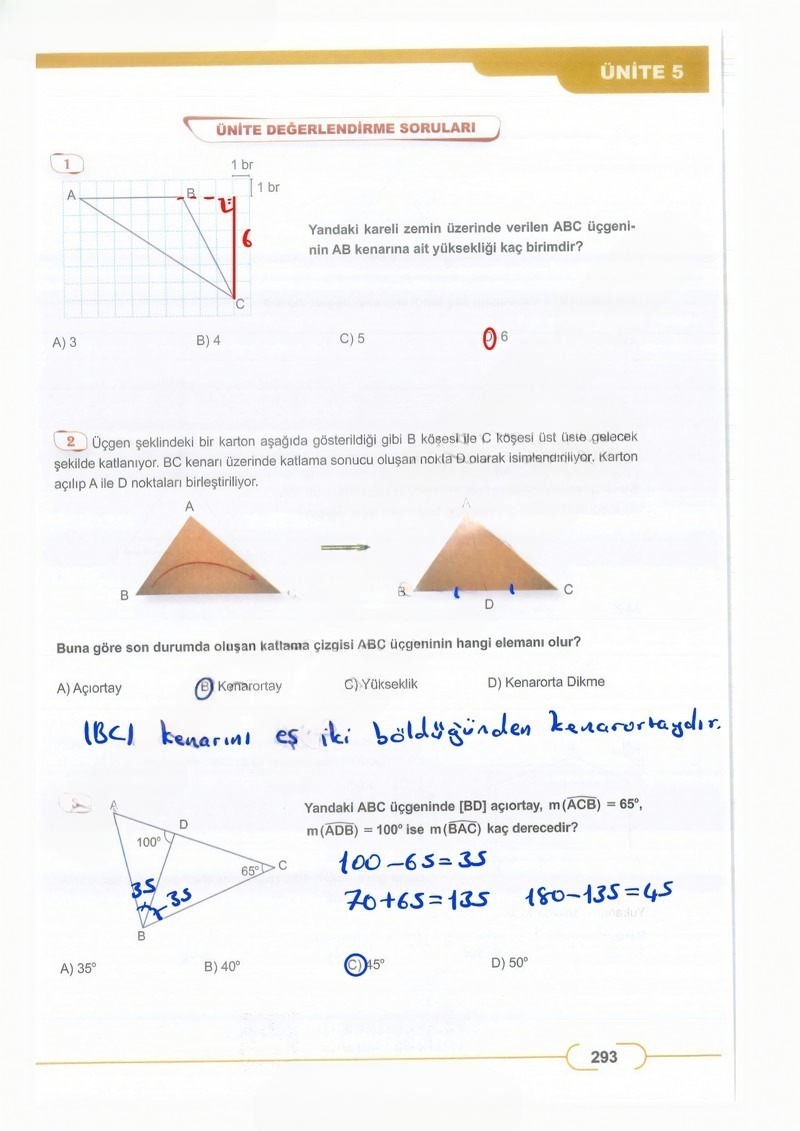 ÜNİTE 5
ÜNİTE DEĞERLENDİRME SORULARI
1
1 br
1 br
A
B
6
C
Yandaki kareli zemin üzerinde verilen ABC üçgeni-
nin AB kenarına ait yüksekliği kaç birimdir?
A) 3 B) 4 C) 5 6
2 Üçgen şeklindeki bir karton aşağıda gösterildiği gibi B köşesi ile C köşesi üst üste gelecek
şekilde katlanıyor. BC kenarı üzerinde katlama sonucu oluşan nokta D olarak isimlendiriliyor. Karton
açılıp A ile D noktaları birleştiriliyor.
A
B
C
A
B
D
C
Buna göre son durumda oluşan katlama çizgisi ABC üçgeninin hangi elemanı olur?
A) Açıortay B) Kenarortay C) Yükseklik D) Kenarorta Dikme
|BC| kenarını eş iki böldüğünden kenarortaydır.
A
D
100°
65°
C
35
35
B
Yandaki ABC üçgeninde [BD] açıortay, m(ACB) = 65°,
m(ADB) = 100° ise m(BAC) kaç derecedir?
100-65=35
70+65=135 180-135=45
A) 35° B) 40° C) 45° D) 50°
293